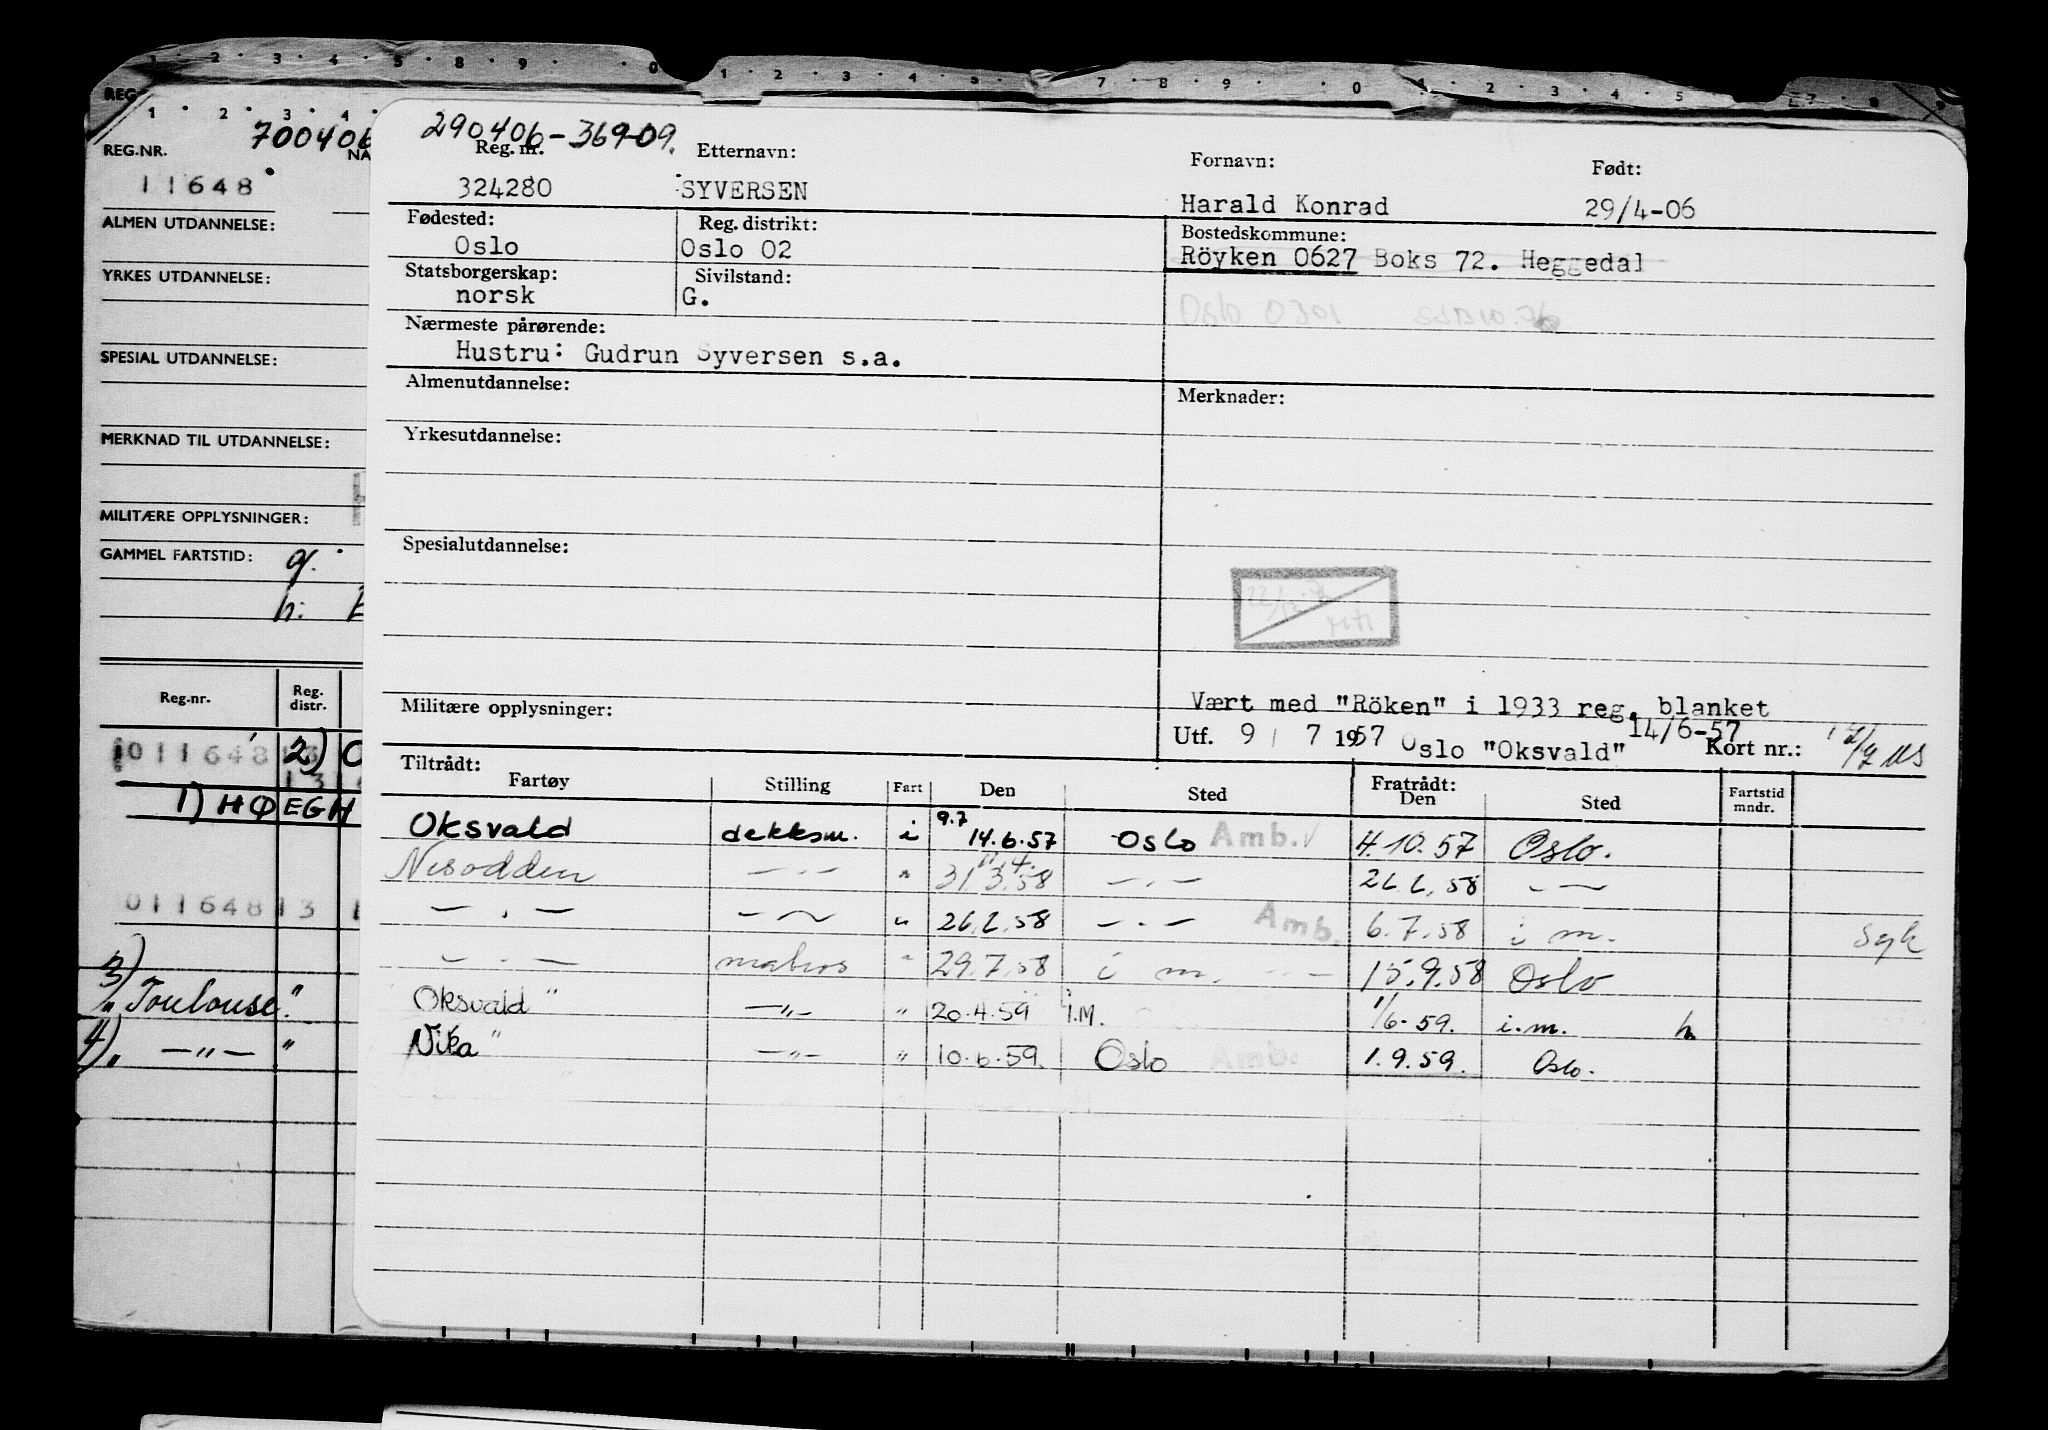 1 · 2 · 3 · 4 · 5 · 8 · 9 · · 0 1 · 2 · 3 · 4 · 5 · 7 · 8 · 9 · · 0 · 1 · 2 · 3 · 4 · 5 · 7 · 8 · 9
REG
1 · 2 · 3 · 4
700406
REG.NR. NA
11648
ALMEN UTDANNELSE:
YRKES UTDANNELSE:
SPESIAL UTDANNELSE:
MERKNAD TIL UTDANNELSE:
MILITÆRE OPPLYSNINGER:
GAMMEL FARTSTID: g.
h:
Reg.nr. Reg. distr.
011648 13 2) O
13
1) HØEGH
011648 13 1
3) " Toulouse "
4) " —"— "
290406-36909.
Reg. nr. Etternavn: Fornavn: Født:
324280 SYVERSEN Harald Konrad 29/4-06
Fødested: Reg. distrikt: Bostedskommune:
Oslo Oslo 02 Röyken 0627 Boks 72. Heggedal
Statsborgerskap: Sivilstand:
norsk G. Oslo 0301
Nærmeste pårørende:
Hustru: Gudrun Syversen s.a.
Almenutdannelse: Merknader:
Yrkesutdannelse:
Spesialutdannelse:
Militære opplysninger: Vært med "Röken" i 1933 reg. blanket
14/6-57
Utf. 9 / 7 1957 Oslo "Oksvald" Kort nr.:
Tiltrådt: Fratrådt:
Fartøy Stilling Fart Den Sted Den Sted Fartstid mndr.
9.7
Oksvald dekksm. i 14.6.57 Oslo Amb. 4.10.57 Oslo.
11.4.
Nesodden —"— " 31.3.58 —"— 26.6.58 —"—
—"— —"— " 26.6.58 —"— Amb. 6.7.58 i m. Syk
—"— matros " 29.7.58 i m. 15.9.58 Oslo
Oksvald " —"— " 20.4.59 i.M. 1/6-59. i.m. h
Nika " —"— " 10.6.59. Oslo Amb. 1.9.59. Oslo.